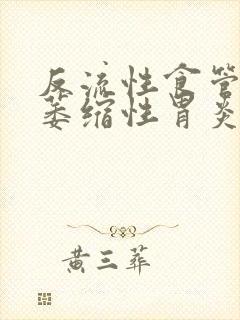 反流性食管
萎缩性胃炎
黄三葬